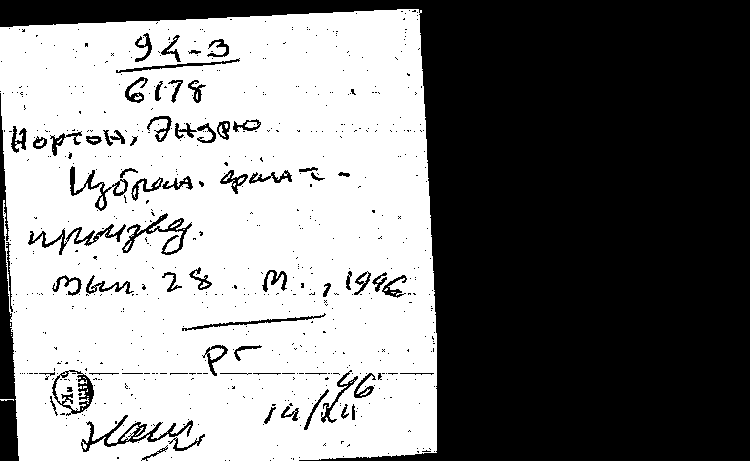 94-3
6178
Нортон, Эндрю
Избран. фант-
произвед.
Вып. 28. М., 1996
РГ
96
14/XII